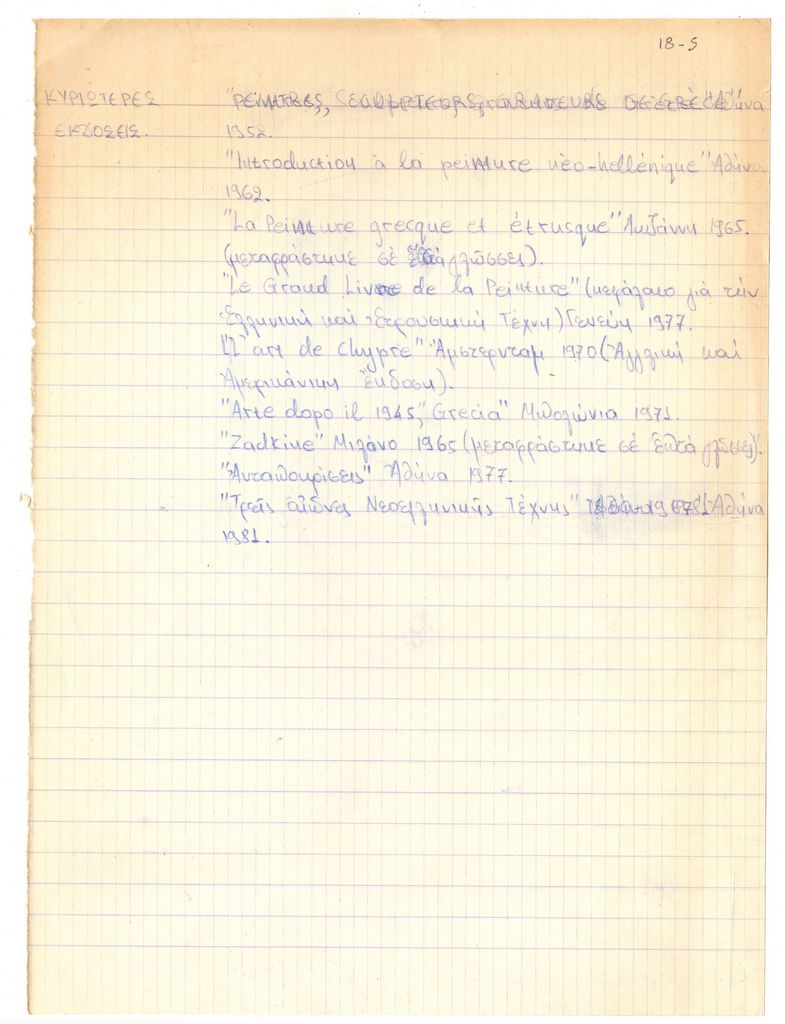 18-5
ΚΥΡΙΩΤΕΡΕΣ
ΕΚΔΟΣΕΙΣ.
"PEINTRES, Ἀθήνα
1952.
"Introduction à la peinture nèo-hellénique" Ἀθήνα
1962.
"La Peinture grecque et étrusque" Λωζάννη 1965.
(μεταφράστηκε σέ γλῶσσες).
"Le Grand Livre de la Peinture" (κεφάλαιο γιά τήν
Ἑλληνική καί Ἐτρουσκική Τέχνη) Γενεύη 1977.
"L'art de Chypre" Ἄμστερνταμ 1970 (Ἀγγλική καί
Ἀμερικάνικη ἔκδοση).
"Arte dopo il 1945," Grecia" Μπολώνια 1971.
"Zadkine" Μιλάνο 1965 (μεταφράστηκε σέ ἑπτά γλῶσσες).
"Ἀνταποκρίσεις" Ἀθήνα 1977.
"Τρεῖς αἰῶνες Νεοελληνικῆς Τέχνης" Ἀθήνα
1981.